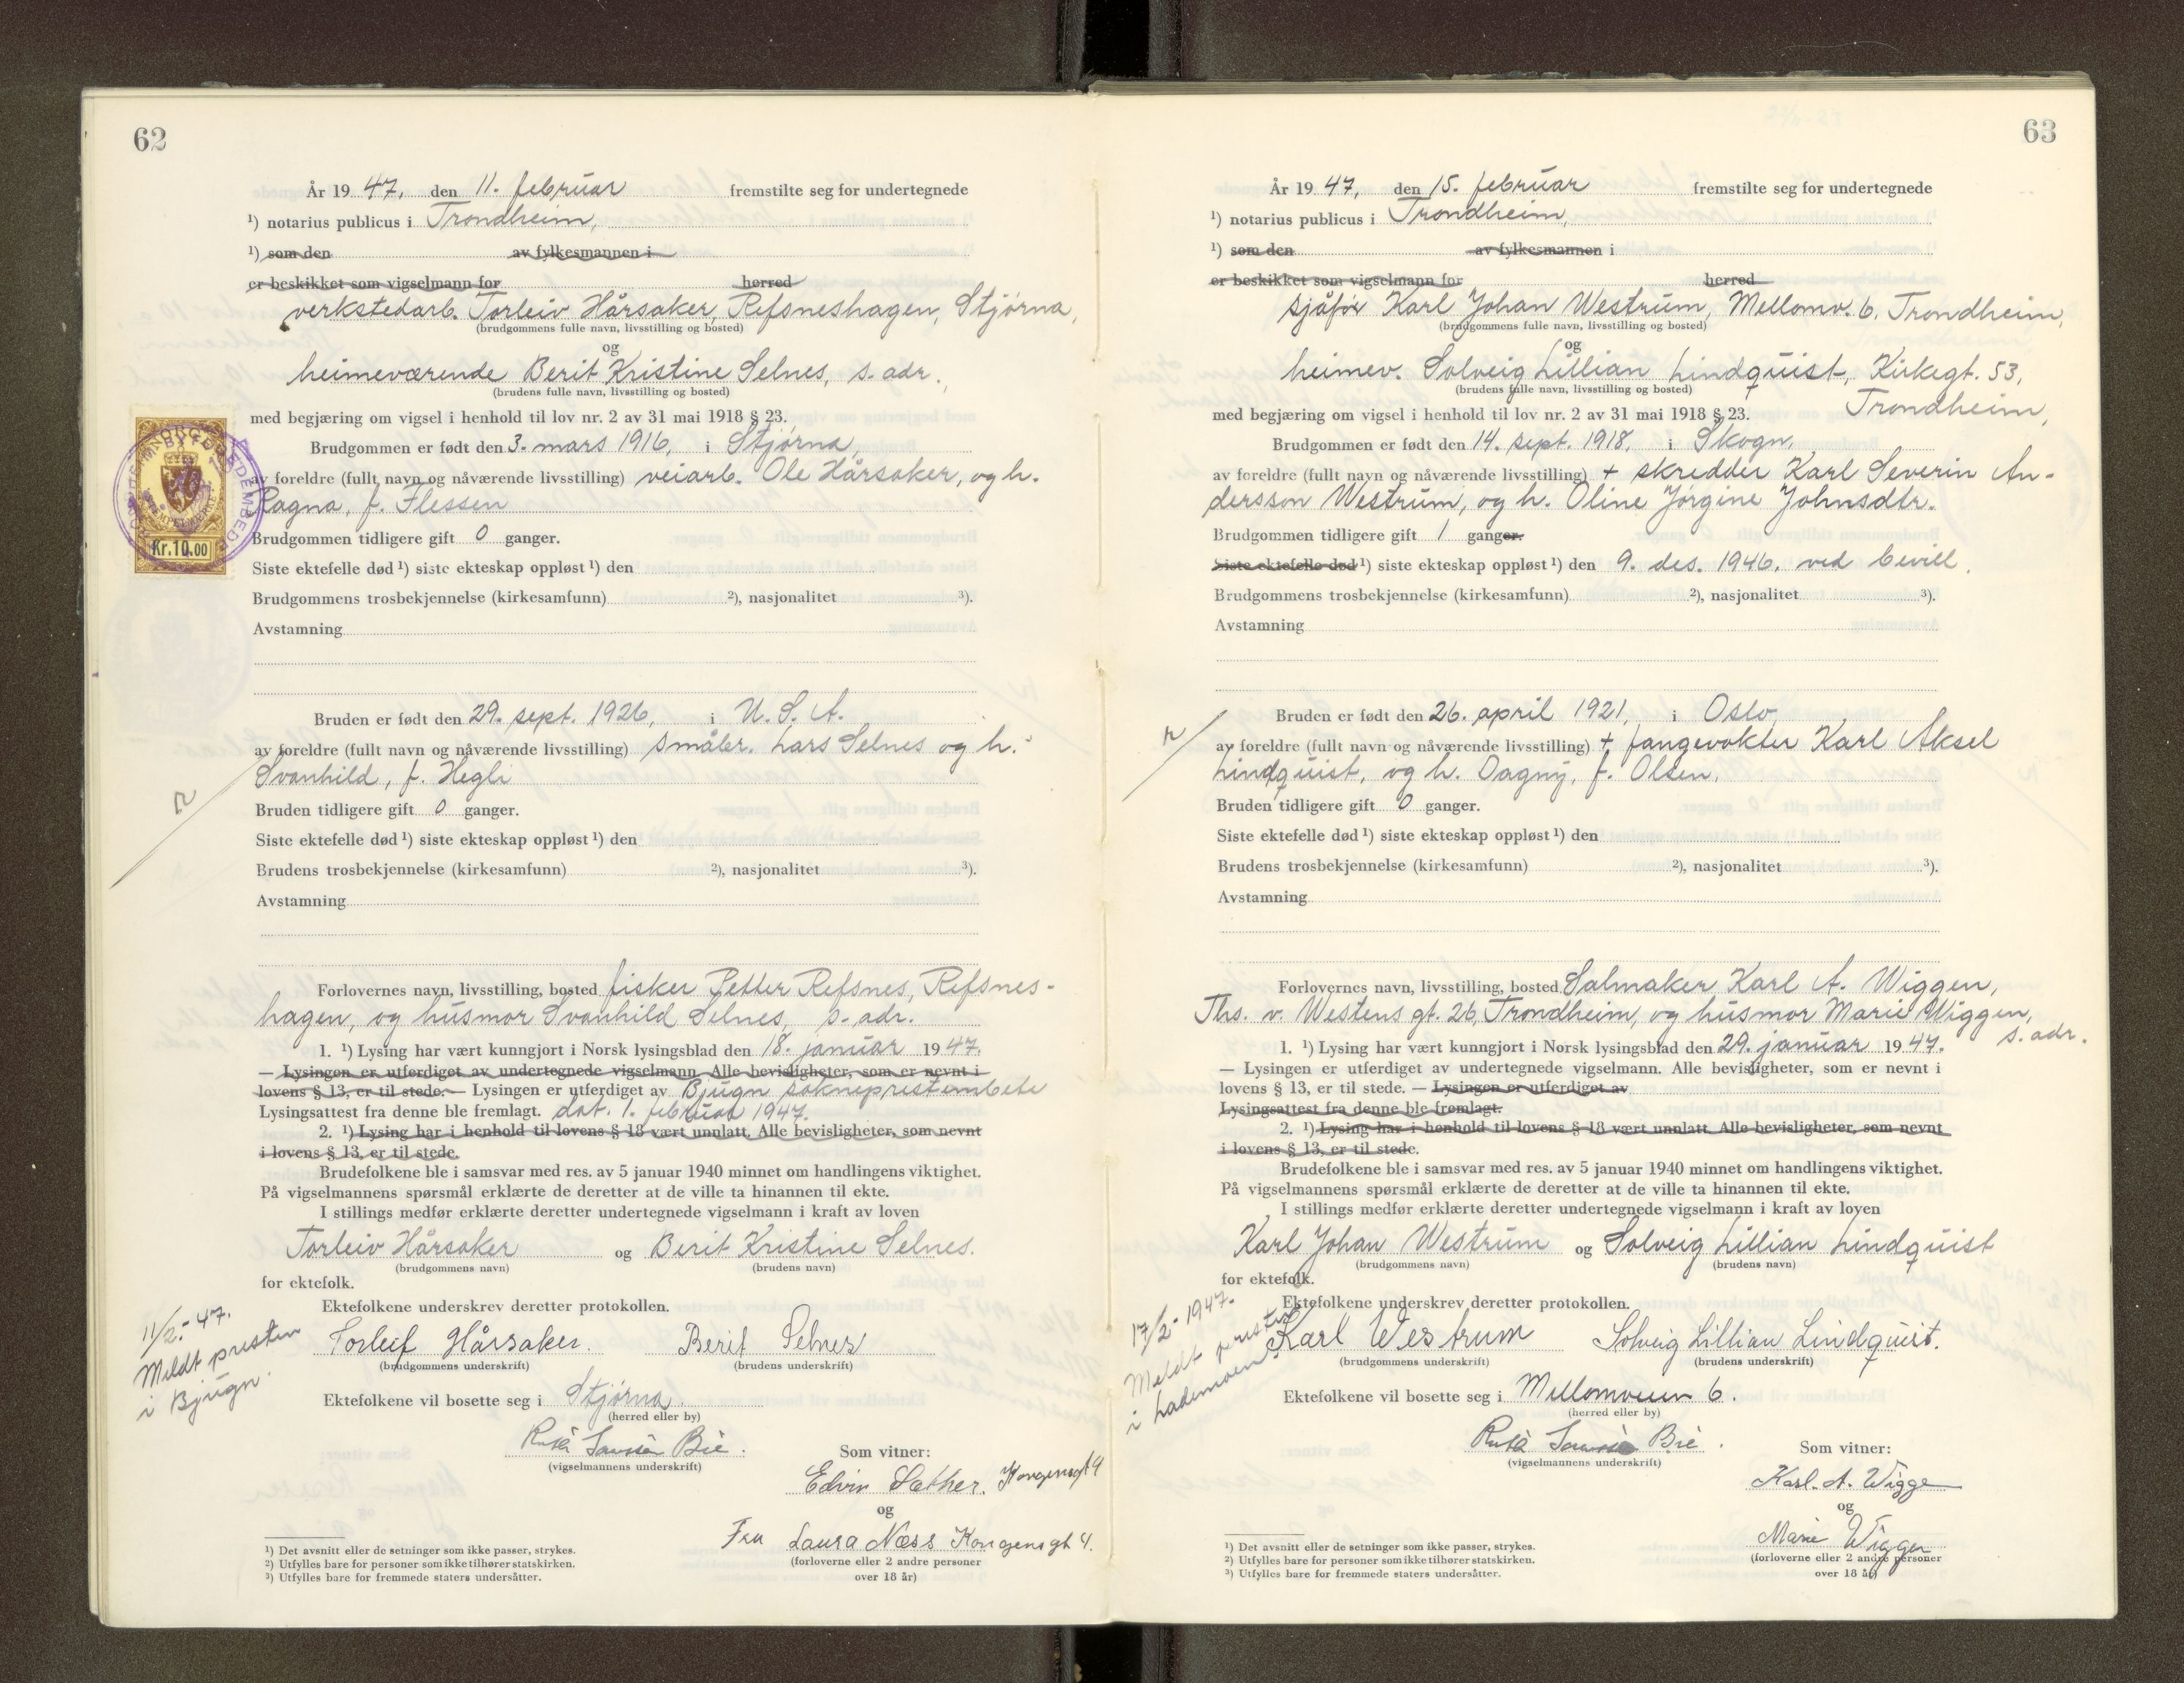 62
År 1947, den 11. februar fremstilte seg for undertegnede
¹) notarius publicus i Trondheim,
¹) som den av fylkesmannen i
er beskikket som vigselmann for herred
verkstedarb. Torleiv Hårsaker, Refsneshagen, Stjørna,
(brudgommens fulle navn, livsstilling og bosted)
og
heimeværende Berit Kristine Selnes, s. adr.,
(brudens fulle navn, livsstilling og bosted)
med begjæring om vigsel i henhold til lov nr. 2 av 31 mai 1918 § 23.
Brudgommen er født den 3. mars 1916, i Stjørna,
av foreldre (fullt navn og nåværende livsstilling) veiarb. Ole Hårsaker, og h.
Ragna, f. Flessen
Kr.10.00
Brudgommen tidligere gift 0 ganger.
Siste ektefelle død ¹) siste ekteskap oppløst ¹) den
Brudgommens trosbekjennelse (kirkesamfunn) ²), nasjonalitet ³).
Avstamning
Bruden er født den 29. sept. 1926, i U. S. A.
av foreldre (fullt navn og nåværende livsstilling) småbr. Lars Selnes og h.
Svanhild, f. Hegli
Bruden tidligere gift 0 ganger.
Siste ektefelle død ¹) siste ekteskap oppløst ¹) den
Brudens trosbekjennelse (kirkesamfunn) ²), nasjonalitet ³).
Avstamning
Forlovernes navn, livsstilling, bosted fisker Petter Refsnes, Refsnes-
hagen, og husmor Svanhild Selnes, s. adr.
1. ¹) Lysing har vært kunngjort i Norsk lysingsblad den 18. januar 1947.
— Lysingen er utferdiget av undertegnede vigselmann. Alle bevisligheter, som er nevnt i
lovens § 13, er til stede. — Lysingen er utferdiget av Bjugn sokneprestembete
Lysingsattest fra denne ble fremlagt. dat. 1. februar 1947.
2. ¹) Lysing har i henhold til lovens § 18 vært unnlatt. Alle bevisligheter, som nevnt
i lovens § 13, er til stede.
Brudefolkene ble i samsvar med res. av 5 januar 1940 minnet om handlingens viktighet.
På vigselmannens spørsmål erklærte de deretter at de ville ta hinannen til ekte.
I stillings medfør erklærte deretter undertegnede vigselmann i kraft av loven
Torleiv Hårsaker og Berit Kristine Selnes.
(brudgommens navn) (brudens navn)
for ektefolk.
Ektefolkene underskrev deretter protokollen.
11/2.-47.
Meldt presten
i Bjugn.
Torleif Hårsaker. Berit Selnes
(brudgommens underskrift) (brudens underskrift)
Ektefolkene vil bosette seg i Stjørna.
(herred eller by)
Bie.
(vigselmannens underskrift)
Som vitner:
Edvin Sæther. Kongensgt 4
og
Fru Laura Næss Kongensgt 4.
(forloverne eller 2 andre personer
over 18 år)
¹) Det avsnitt eller de setninger som ikke passer, strykes.
²) Utfylles bare for personer som ikke tilhører statskirken.
³) Utfylles bare for fremmede staters undersåtter.
63
År 1947, den 15. februar fremstilte seg for undertegnede
¹) notarius publicus i Trondheim,
¹) som den av fylkesmannen i
er beskikket som vigselmann for herred
sjåfør Karl Johan Westrum, Mellomv. 6, Trondheim,
(brudgommens fulle navn, livsstilling og bosted)
og
heimev. Solveig Lillian Lindquist, Kirkegt. 53,
(brudens fulle navn, livsstilling og bosted)
Trondheim,
med begjæring om vigsel i henhold til lov nr. 2 av 31 mai 1918 § 23.
Brudgommen er født den 14. sept. 1918, i Skogn,
av foreldre (fullt navn og nåværende livsstilling) + skredder Karl Severin An-
dersson Westrum, og h. Oline Jørgine Johnsdtr.
Brudgommen tidligere gift 1 ganger.
Siste ektefelle død ¹) siste ekteskap oppløst ¹) den 9. des. 1946, ved bevill.
Brudgommens trosbekjennelse (kirkesamfunn) ²), nasjonalitet ³).
Avstamning
Bruden er født den 26. april 1921, i Oslo,
av foreldre (fullt navn og nåværende livsstilling) + fangevokter Karl Aksel
Lindquist, og h. Dagny, f. Olsen.
Bruden tidligere gift 0 ganger.
Siste ektefelle død ¹) siste ekteskap oppløst ¹) den
Brudens trosbekjennelse (kirkesamfunn) ²), nasjonalitet ³).
Avstamning
Forlovernes navn, livsstilling, bosted Salmaker Karl A. Wiggen,
Ths. v. Westens gt. 26, Trondheim, og husmor Marie Wiggen,
s. adr.
1. ¹) Lysing har vært kunngjort i Norsk lysingsblad den 29. januar 1947.
— Lysingen er utferdiget av undertegnede vigselmann. Alle bevisligheter, som er nevnt i
lovens § 13, er til stede. — Lysingen er utferdiget av
Lysingsattest fra denne ble fremlagt.
2. ¹) Lysing har i henhold til lovens § 18 vært unnlatt. Alle bevisligheter, som nevnt
i lovens § 13, er til stede.
Brudefolkene ble i samsvar med res. av 5 januar 1940 minnet om handlingens viktighet.
På vigselmannens spørsmål erklærte de deretter at de ville ta hinannen til ekte.
I stillings medfør erklærte deretter undertegnede vigselmann i kraft av loven
Karl Johan Westrum og Solveig Lillian Lindquist
(brudgommens navn) (brudens navn)
for ektefolk.
Ektefolkene underskrev deretter protokollen.
17/2-1947.
Meldt presten
i Lademoen.
Karl Westrum Solveig Lillian Lindquist.
(brudgommens underskrift) (brudens underskrift)
Ektefolkene vil bosette seg i Mellomveien 6.
(herred eller by)
Bie.
(vigselmannens underskrift)
Som vitner:
Karl. A. Wigge
og
Marie Wiggen
(forloverne eller 2 andre personer
over 18 år)
¹) Det avsnitt eller de setninger som ikke passer, strykes.
²) Utfylles bare for personer som ikke tilhører statskirken.
³) Utfylles bare for fremmede staters undersåtter.